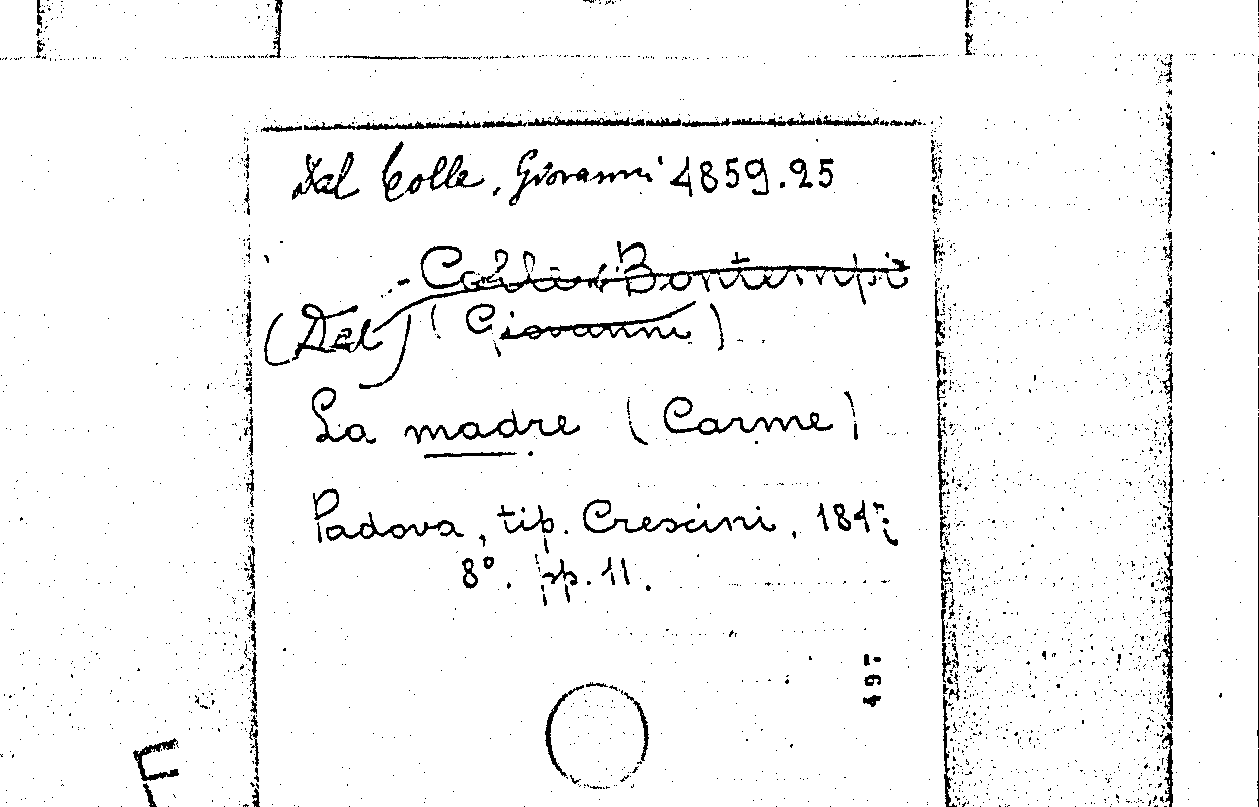 Dal Colle, Giovanni 4859.25
Bontempi
(Dal) (Giovanni)
La madre (Carme)
Padova, tip. Crescini, 1847
8°. pp. 11.
497